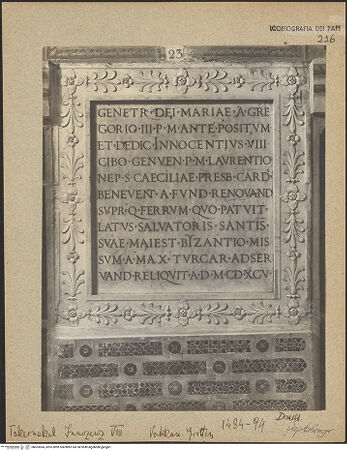 ICONOGRAFIA DEI PAPI
216
23
GENETR·DEI·MARIAE·A·GRE
GORIO·III·P·M·ANTE·POSITVM
ET·DEDIC·INNOCENTIVS·VIII
CIBO·GENVEN·P·M·LAVRENTIO
NEP·S·CAECILIAE·PRESB·CARD
BENEVENT·A·FVND·RENOVAND
SVPRQ·FERRVM·QVO·PATVIT
LATVS·SALVATORIS·SANTIS
SVAE·MAIEST·BYZANTIO·MIS
SVM·A·MAX·TVRCAR·ADSER
VAND·RELIQVIT·A·D·M·CD·XCV·
Tabernakel Innozenz VIII
Vatikan. Grotten
1484-94